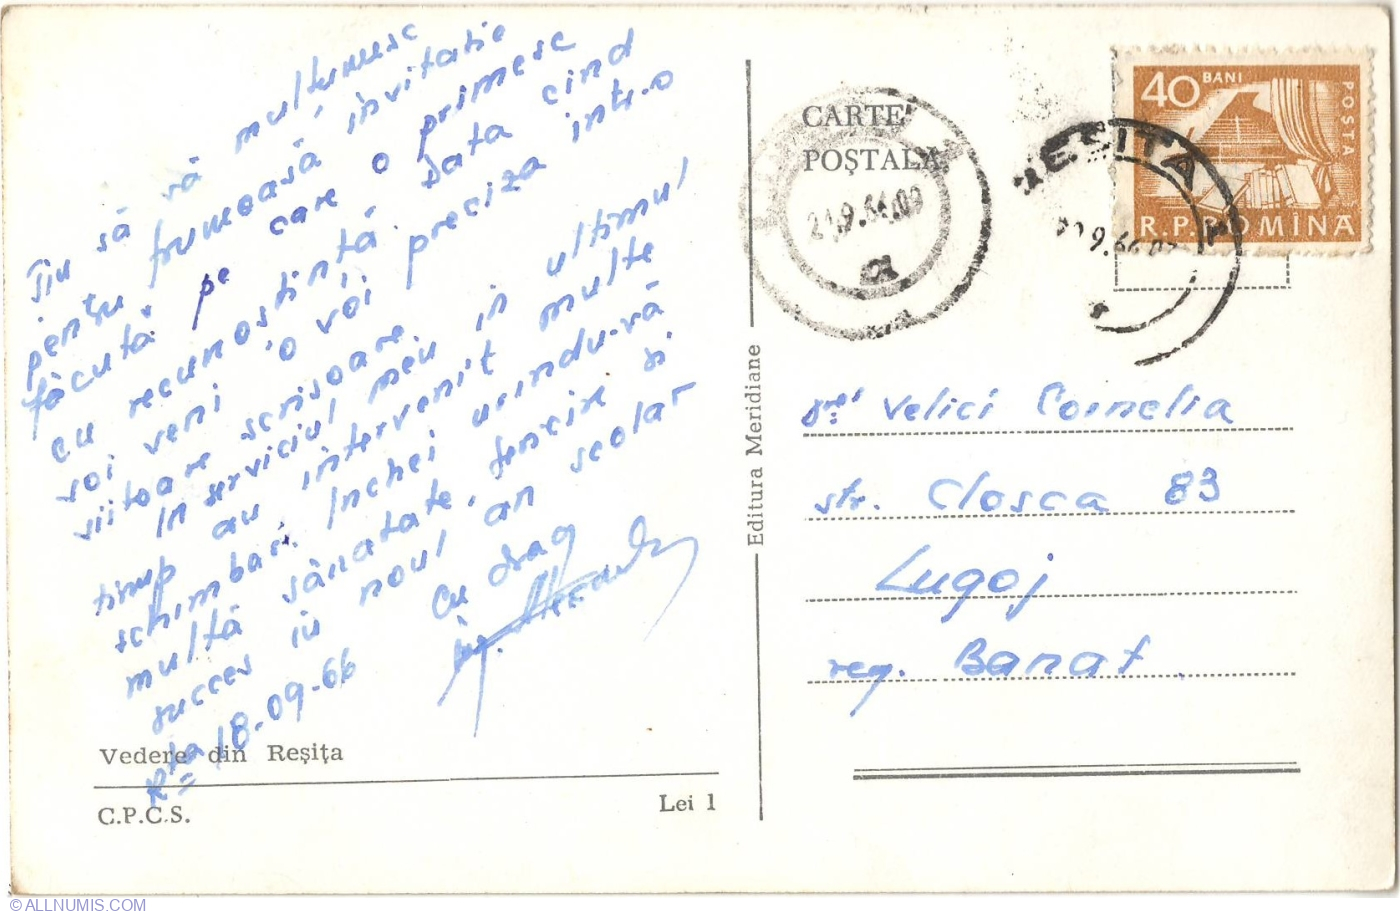 Țiu să vă mulțumesc
pentru frumoasă, invitatie
făcută pe care o primesc
cu recunoștință. Data cind
voi veni o voi preciza intr-o
viitoare scrisoare.
In serviciul meu in ultimul
timp au intervenit multe
schimbari. Inchei urindu-vă
multă sănatate, fericire si
succes in noul an scolar
Cu drag
R-ta 18-09-66
Vedere din Reșița
C.P.C.S.
Lei 1
Editura Meridiane
CARTE
POȘTALĂ
21.9.66.09
REȘIȚA
9.66
40 BANI
POSTA
R.P.ROMÎNA
Velici Cornelia
str. Closca 83
Lugoj
reg. Banat
©ALLNUMIS.COM